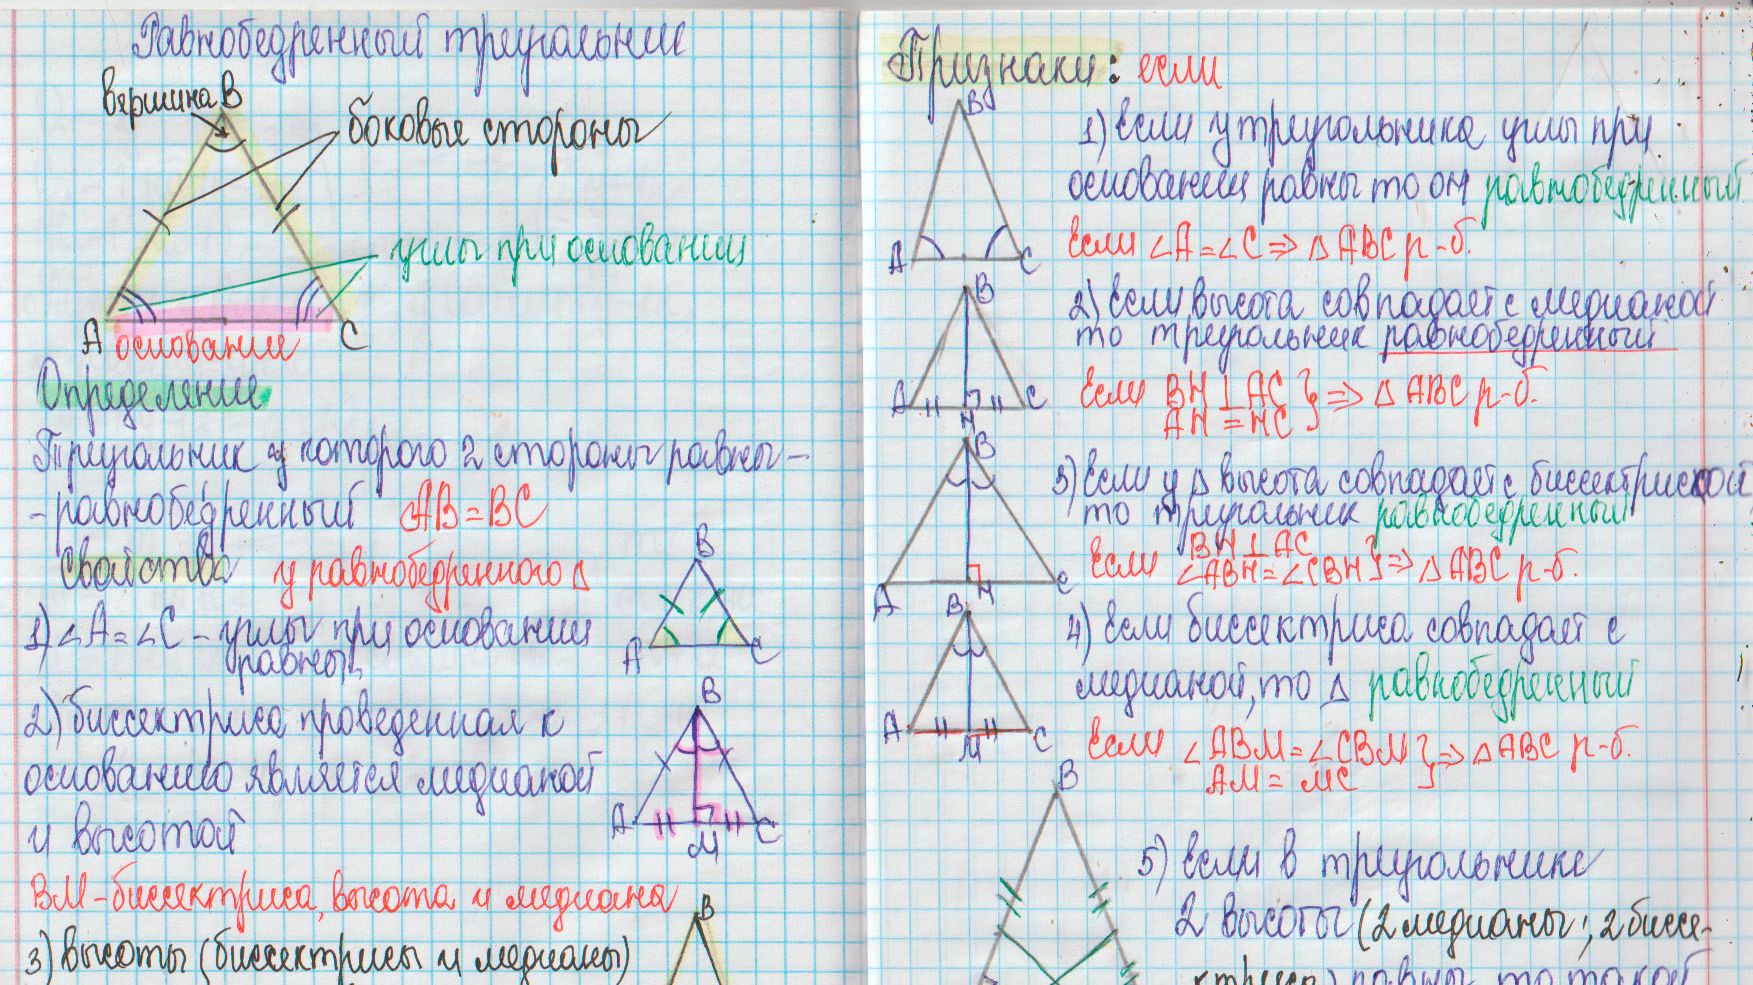 Равнобедренный треугольник
вершина B
боковые стороны
углы при основании
A основание C
Определение
Треугольник у которого 2 стороны равны -
- равнобедренный AB = BC
Свойства у равнобедренного Δ
B
1) ∠A = ∠C - углы при основании
равны.
A C
2) биссектриса проведенная к
основанию является медианой
и высотой
B
A M C
BM - биссектриса, высота и медиана
B
3) высоты (биссектрисы и медианы)
Признаки: если
B
1) Если у треугольника углы при
основании равны то он равнобедренный
Если ∠A = ∠C => Δ ABC р-б.
A C
B
2) Если высота совпадает с медианой
то треугольник равнобедренный
Если BH ⊥ AC } => Δ ABC р-б.
AH = HC
A H C
B
3) Если у Δ высота совпадает с биссектрисой
то треугольник равнобедренный
BH ⊥ AC
Если ∠ABH = ∠CBH } => Δ ABC р-б.
A H C
B
4) Если биссектриса совпадает с
медианой, то Δ равнобедренный
A M C
Если ∠ABM = ∠CBM } => Δ ABC р-б.
AM = MC
B
5) Если в треугольнике
2 высоты (2 медианы; 2 биссе-
ктрисы) равны то такой